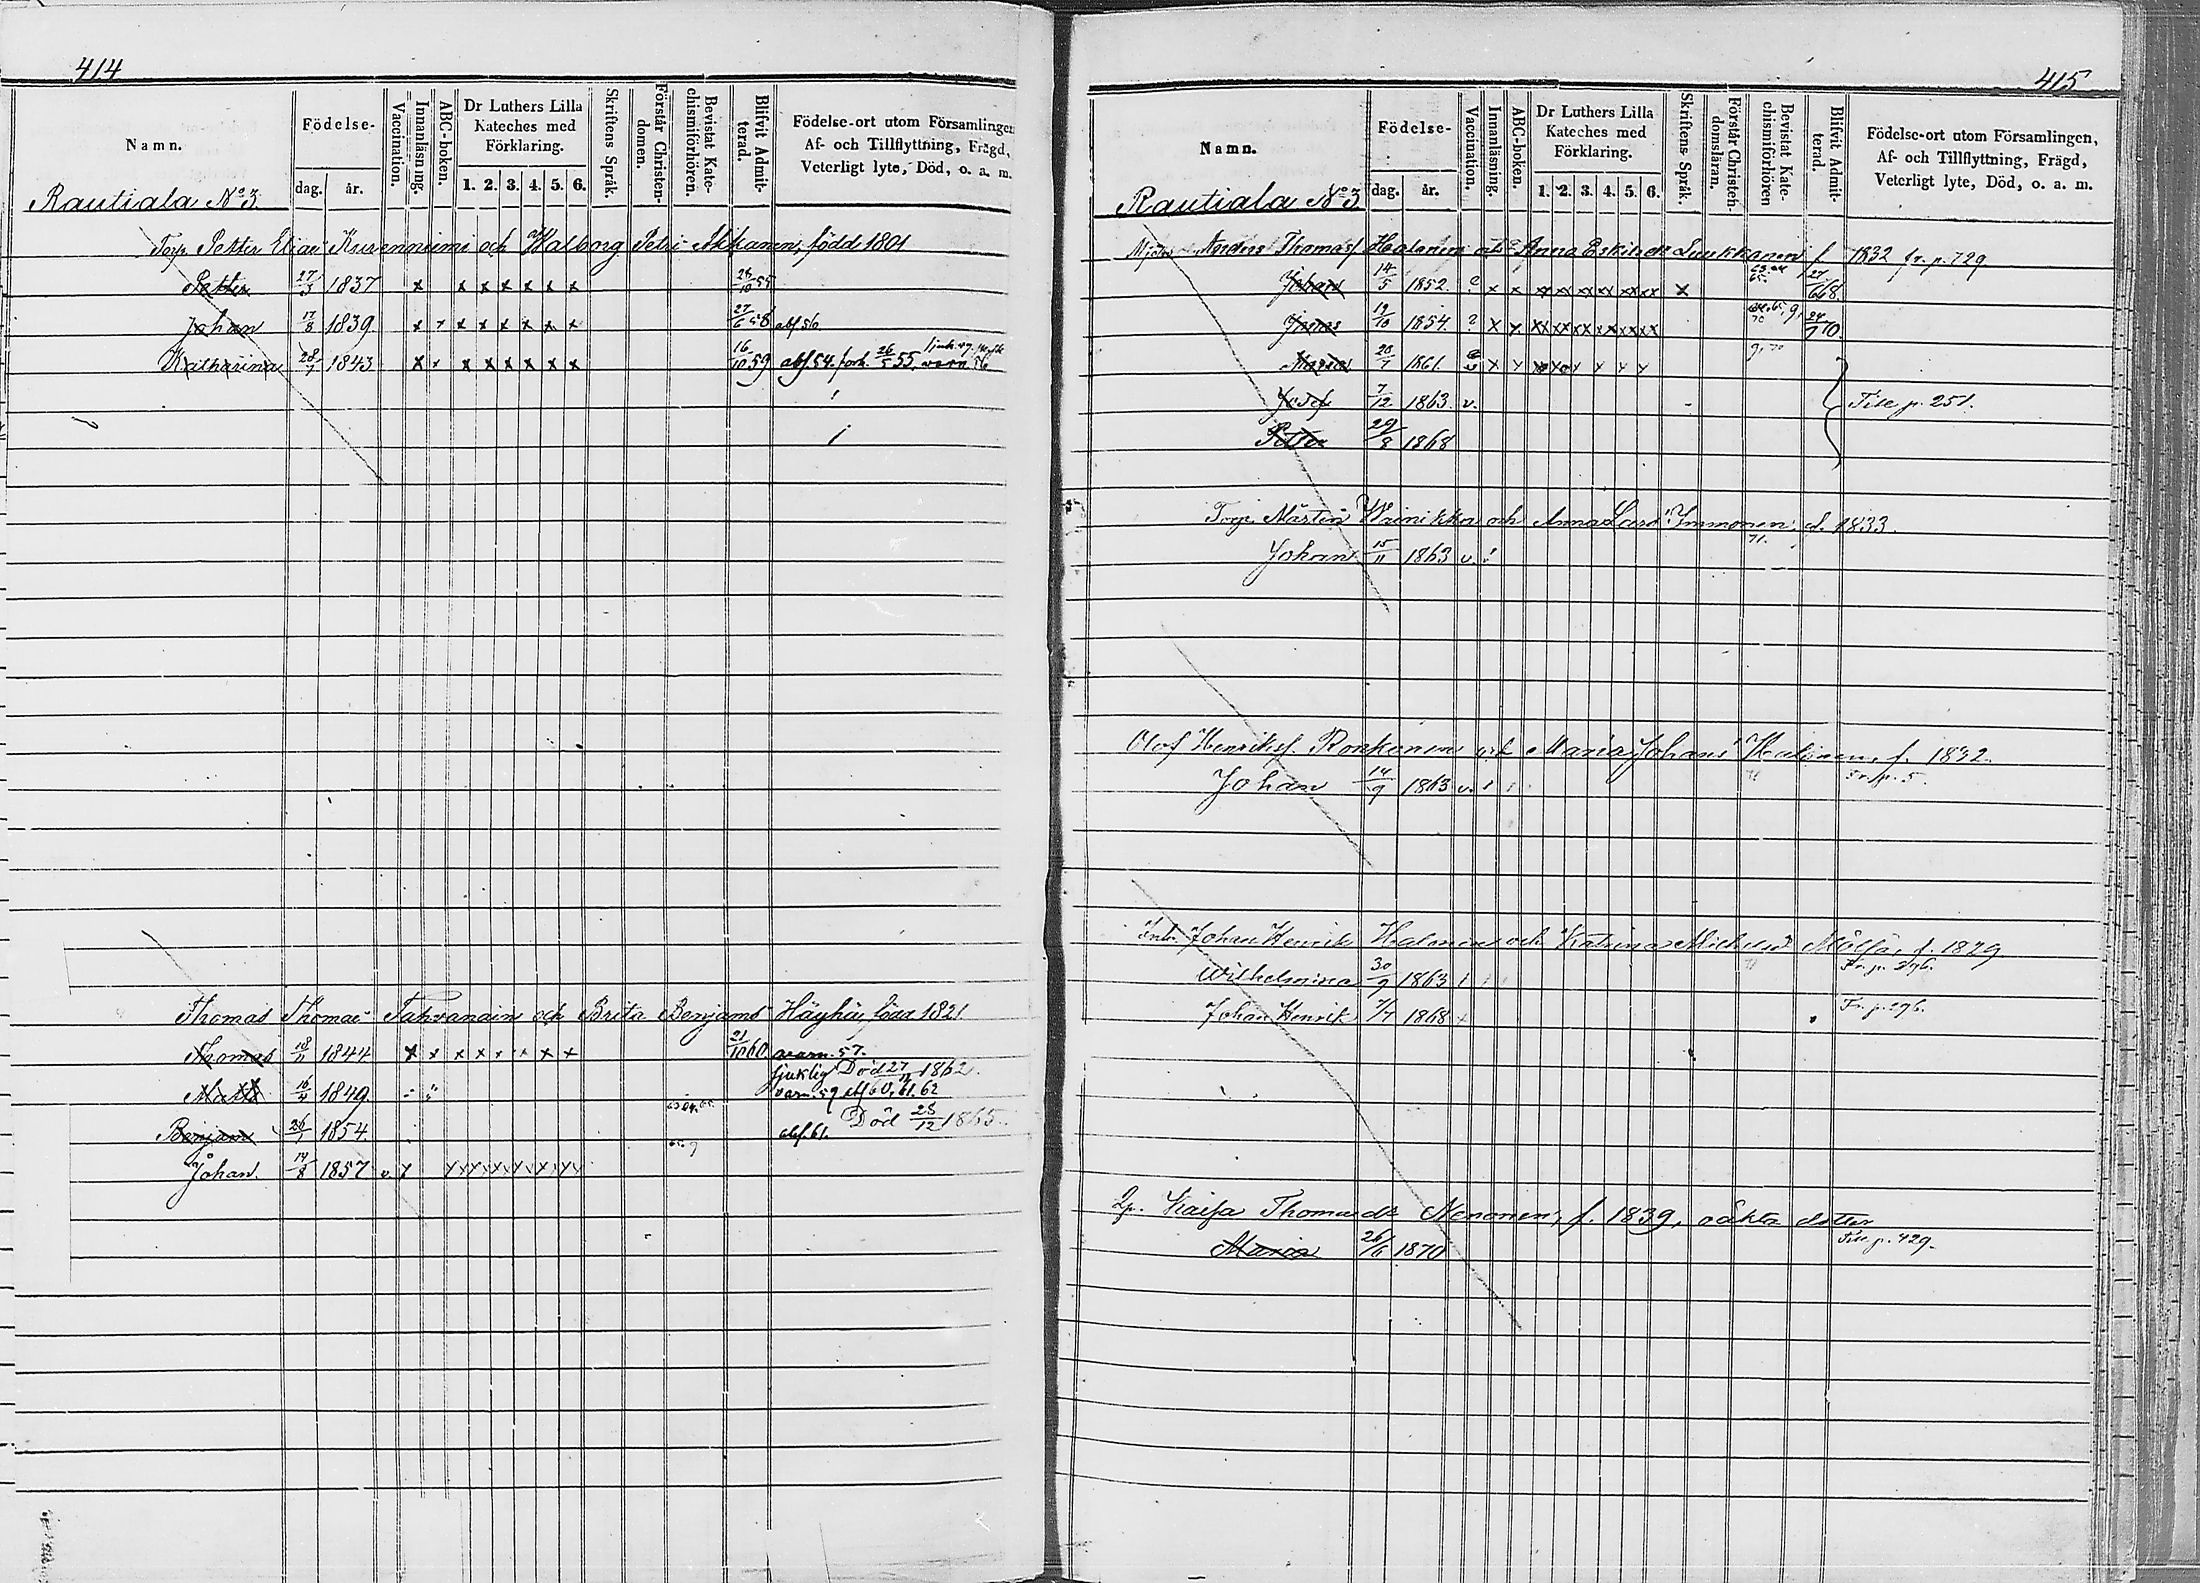 414
Namn.
Födelse-
dag. år.
Vaccination.
Innanläsning.
ABC-boken.
Dr Luthers Lilla
Kateches med
Förklaring.
1. 2. 3. 4. 5. 6.
Skriftens Språk.
Förstår Christen-
domen.
Bevistat Kate-
chismiförhören.
Blifvit Admit-
terad.
Födelse-ort utom Församlingen
Af- och Tillflyttning, Frägd,
Veterligt lyte, Död, o. a. m.
Rautiala No 3.
Torp. Petter Elias Kurenniemi och Walborg Petri Akkanen, född 1801
Petter 27/3 1837 x x x x x x x 28/10 55
Johan 17/8 1839 x x x x x x x x 27/6 58 abs. 56
Katharina 28/7 1843 x x x x x x x x 16/10 59 abs. 54. 26/5 55. varn. 56
Thomas Thomas Tahvanain och Brita Benjams Häyhä, född 1821
Thomas 18/11 1844 x x x x x x x x 21/10 60 varn. 57.
sjuklig Död 27 1862.
Matts 16/4 1849 varn. 59 abs 60. 61. 62
Benjam 26/1 1854. abs. 61. Död 25/12 1865.
Johan. 14/8 1857 v.
415
Namn.
Födelse-
dag. år.
Vaccination.
Innanläsning.
ABC-boken.
Dr Luthers Lilla
Kateches med
Förklaring.
1. 2. 3. 4. 5. 6.
Skriftens Språk.
Förstår Christen-
domsläran.
Bevistat Kate-
chismiförhören
Blifvit Admit-
terad.
Födelse-ort utom Församlingen,
Af- och Tillflyttning, Frägd,
Veterligt lyte, Död, o. a. m.
Rautiala No 3
Anders Thomas Halonen och Anna Eskilsdr Luukkanen f 1832 fr. p. 729
Johan 14/5 1852 ? x x xx xx xx xx xx xx x 68.
Jonas 19/10 1854. ? x x xx xx xx xx xx xx 70.
Maria 20/7 1861.
Josef 7/12 1863. v. Tile p. 251.
Petter 29/8 1868
Torp. Mårten Weinikka och Anna Lars Immonen, f. 1833.
71.
Johan 15/11 1863 v.
Olof Henriks. Ronkonen och Maria Johans Halonen, f. 1832.
Johan 14/9 1863 v. Fr. p. 5.
Inh. Johan Henrik Halonen och Katrina Michels Mölsä, f. 1829
Wilhelmina 30/9 1863 Fr. p. 296.
Johan Henrik 7/7 1868 Fr. p. 296.
Lp. Kaisa Thomasdr Nenonen, f. 1839, oäkta dotter
Maria 26/6 1870 Tile p. 429.